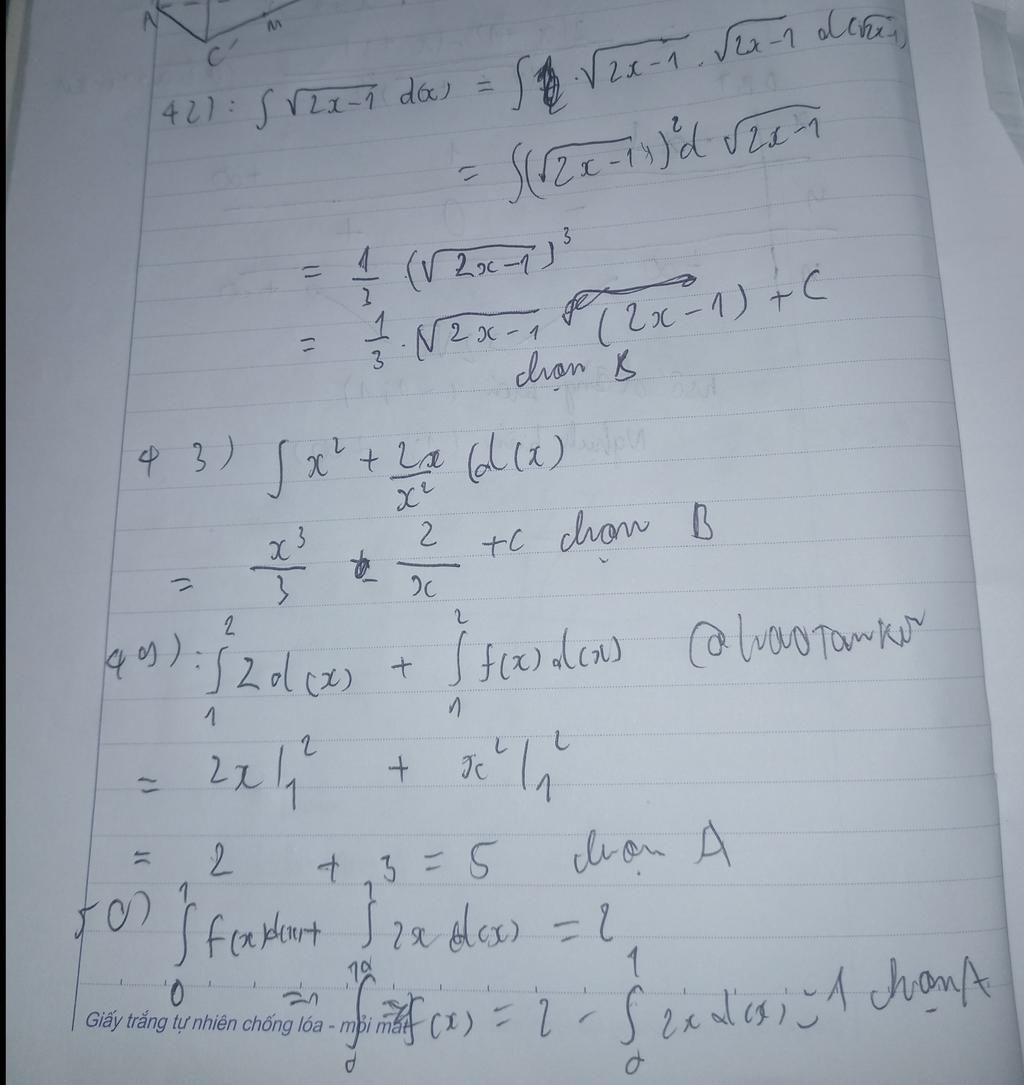 A
C'
M
42): ∫ √(2x-1) d(x) = ∫ . √(2x-1) . √(2x-1) d(√(2x-1))
= ∫(√(2x-1))² d √(2x-1)
= 1/3 (√(2x-1))³
= 1/3 . √(2x-1) (2x-1) + C
chọn B
43) ∫ x² + 2x/x² d(x)
= x³/3 - 2/x + C chọn B
49): ∫₁² 2 d(x) + ∫₁² f(x) d(x)
= 2x |₁² + x² |₁²
= 2 + 3 = 5 chọn A
50) ∫₀¹ f(x) d(x) + ∫₀¹ 2x d(x) = 2
=> ∫₀¹ f(x) = 2 - ∫₀¹ 2x d(x) = 1 chọn A
Giấy trắng tự nhiên chống lóa - mỏi mắt